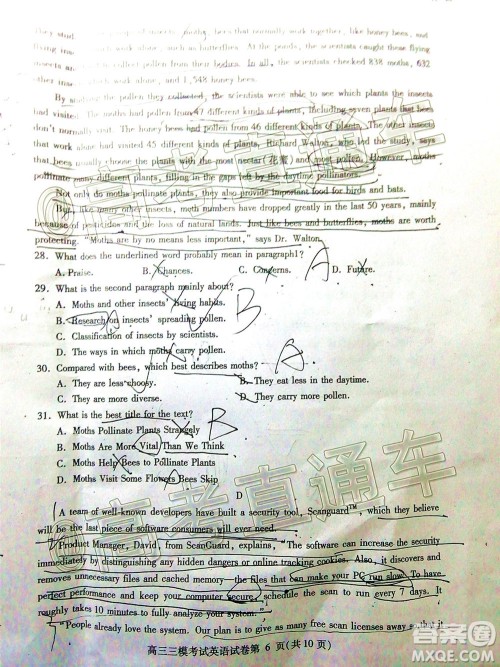 they stud
also work alone, such as butterflies. At the ponds, the scientists caught these flying
insects and collect pollen from their bodies. In all, the scientists checked 838 moths, 632
work alone, and 1,548 honey bees.
By analyzing the pollen they collected, the scientists were able to see which plants the insects
had visited. The moths had pollen from 47 different kinds of plants, including seven plants that bees
don't normally visit. The honey bees had pollen from 46 different kinds of plants. The other insects
that work alone had visited 45 different kinds of plants, Richard Walton, who led the study, says
that bees usually choose the plants with the most nectar(花蜜) and most pollen. However, moths
pollinate many different plants, filling in the gaps left by the daytime pollinators.
Not only do moths pollinate plants, they also provide important food for birds and bats.
But, like many other insects, moth numbers have dropped greatly in the last 50 years, mainly
because of pesticides and the loss of natural lands. Just like bees and butterflies, moths are worth
protecting. "Moths are by no means less important," says Dr. Walton.
28. What does the underlined word probably mean in paragraph1?
A. Praise. B. Chances. C. Concerns. D. Future.
A
29. What is the second paragraph mainly about?
A. Moths and other insects' living habits.
B. Research on insects' spreading pollen.
B
C. Classification of insects by scientists.
D. The ways in which moths carry pollen.
30. Compared with bees, which best describes moths?
A
A. They are less choosy. B. They eat less in the daytime.
C. They are more diverse. D. They carry more pollen.
31. What is the best title for the text?
B
A. Moths Pollinate Plants Strangely
B. Moths Are More Vital Than We Think
C. Moths Help Bees to Pollinate Plants
D. Moths Visit Some Flowers Bees Skip
D
A team of well-known developers have built a security tool, Scanguard™, which they believe
will be the last piece of software consumers will ever need.
Product Manager, David, from ScanGuard, explains, "The software can increase the security
immediately by distinguishing any hidden dangers or online tracking cookies. Also, it discovers and
removes unnecessary files and cached memory—the files that can make your PC run slow. To have
perfect performance and keep your computer secure, schedule the scan to run every 7 days. It
roughly takes 10 minutes to fully analyze your system."
"People already love the system. Our plan is to give as many free scan licenses away, so that
高三三模考试英语试卷第 6 页(共10页)
@高考直通车
答案圈
MXQE.COM